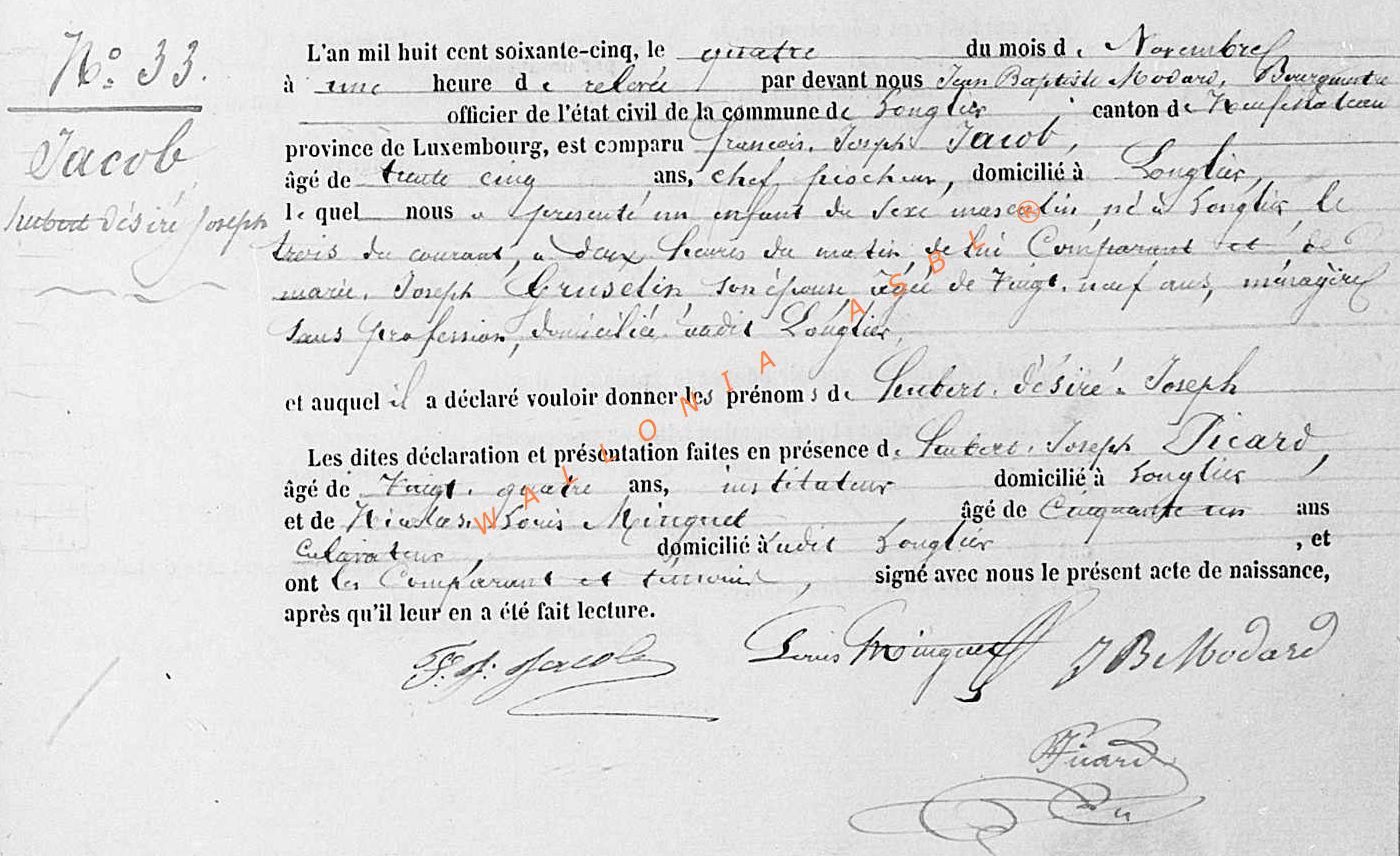 N° 33.
Jacob
hubert désiré Joseph
L'an mil huit cent soixante-cinq, le quatre du mois de Novembre
à une heure de relevée par devant nous Jean Baptiste Modard, Bourgmestre
officier de l'état civil de la commune de Longlier canton de Neufchateau
province de Luxembourg, est comparu françois, Joseph Jacob,
âgé de trente cinq ans, chef piocheur, domicilié à Longlier,
le quel nous a présenté un enfant du sexe masculin, né à Longlier, le
trois du courant, à deux heures du matin, de lui Comparant et de
marie, Joseph Gruselin son épouse âgée de vingt, neuf ans, ménagère
sans profession, domiciliée audit Longlier,
et auquel il a déclaré vouloir donner les prénoms de hubert, désiré, Joseph
Les dites déclaration et présentation faites en présence de hubert, Joseph Picard,
âgé de vingt, quatre ans, instituteur domicilié à Longlier,
et de Nicolas, Louis Minguet âgé de Cinquante un ans
Cultivateur, domicilié audit Longlier, et
ont les Comparant et témoins, signé avec nous le présent acte de naissance,
après qu'il leur en a été fait lecture.
F. J. Jacob Louis Minguet J B Modard
Picard
WALLONIA ASBL ®